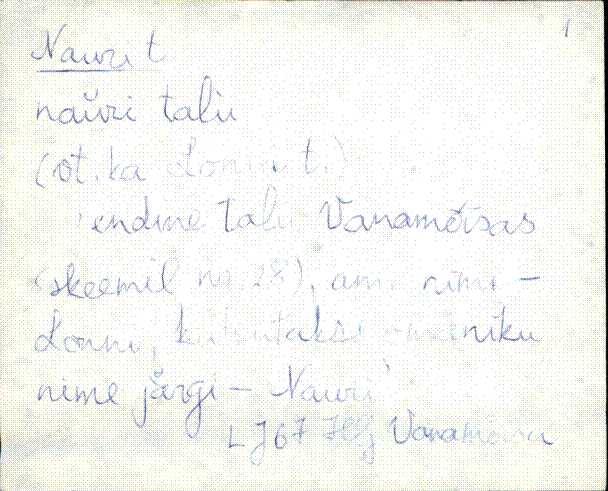 1
Nauri t.
naŭri talu
(vt. ka Lonni t.)
endine talu Vanamõtsas
(skeemil no 28), am. nimi -
Lonni, kutsutakse omaniku
nime järgi - Nauri
LJ67 Hlj Vanamõisa